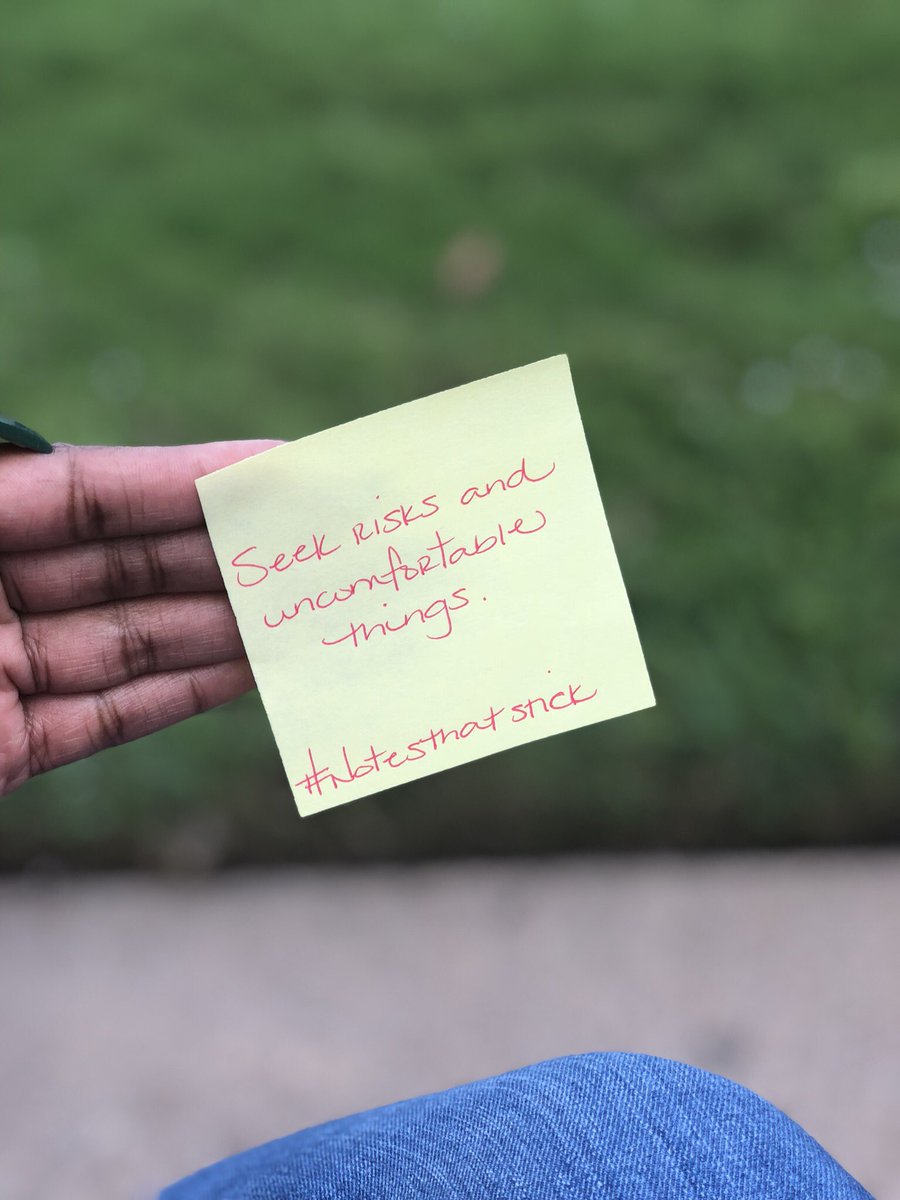 Seek risks and
uncomfortable
things.
#Notesthatstick